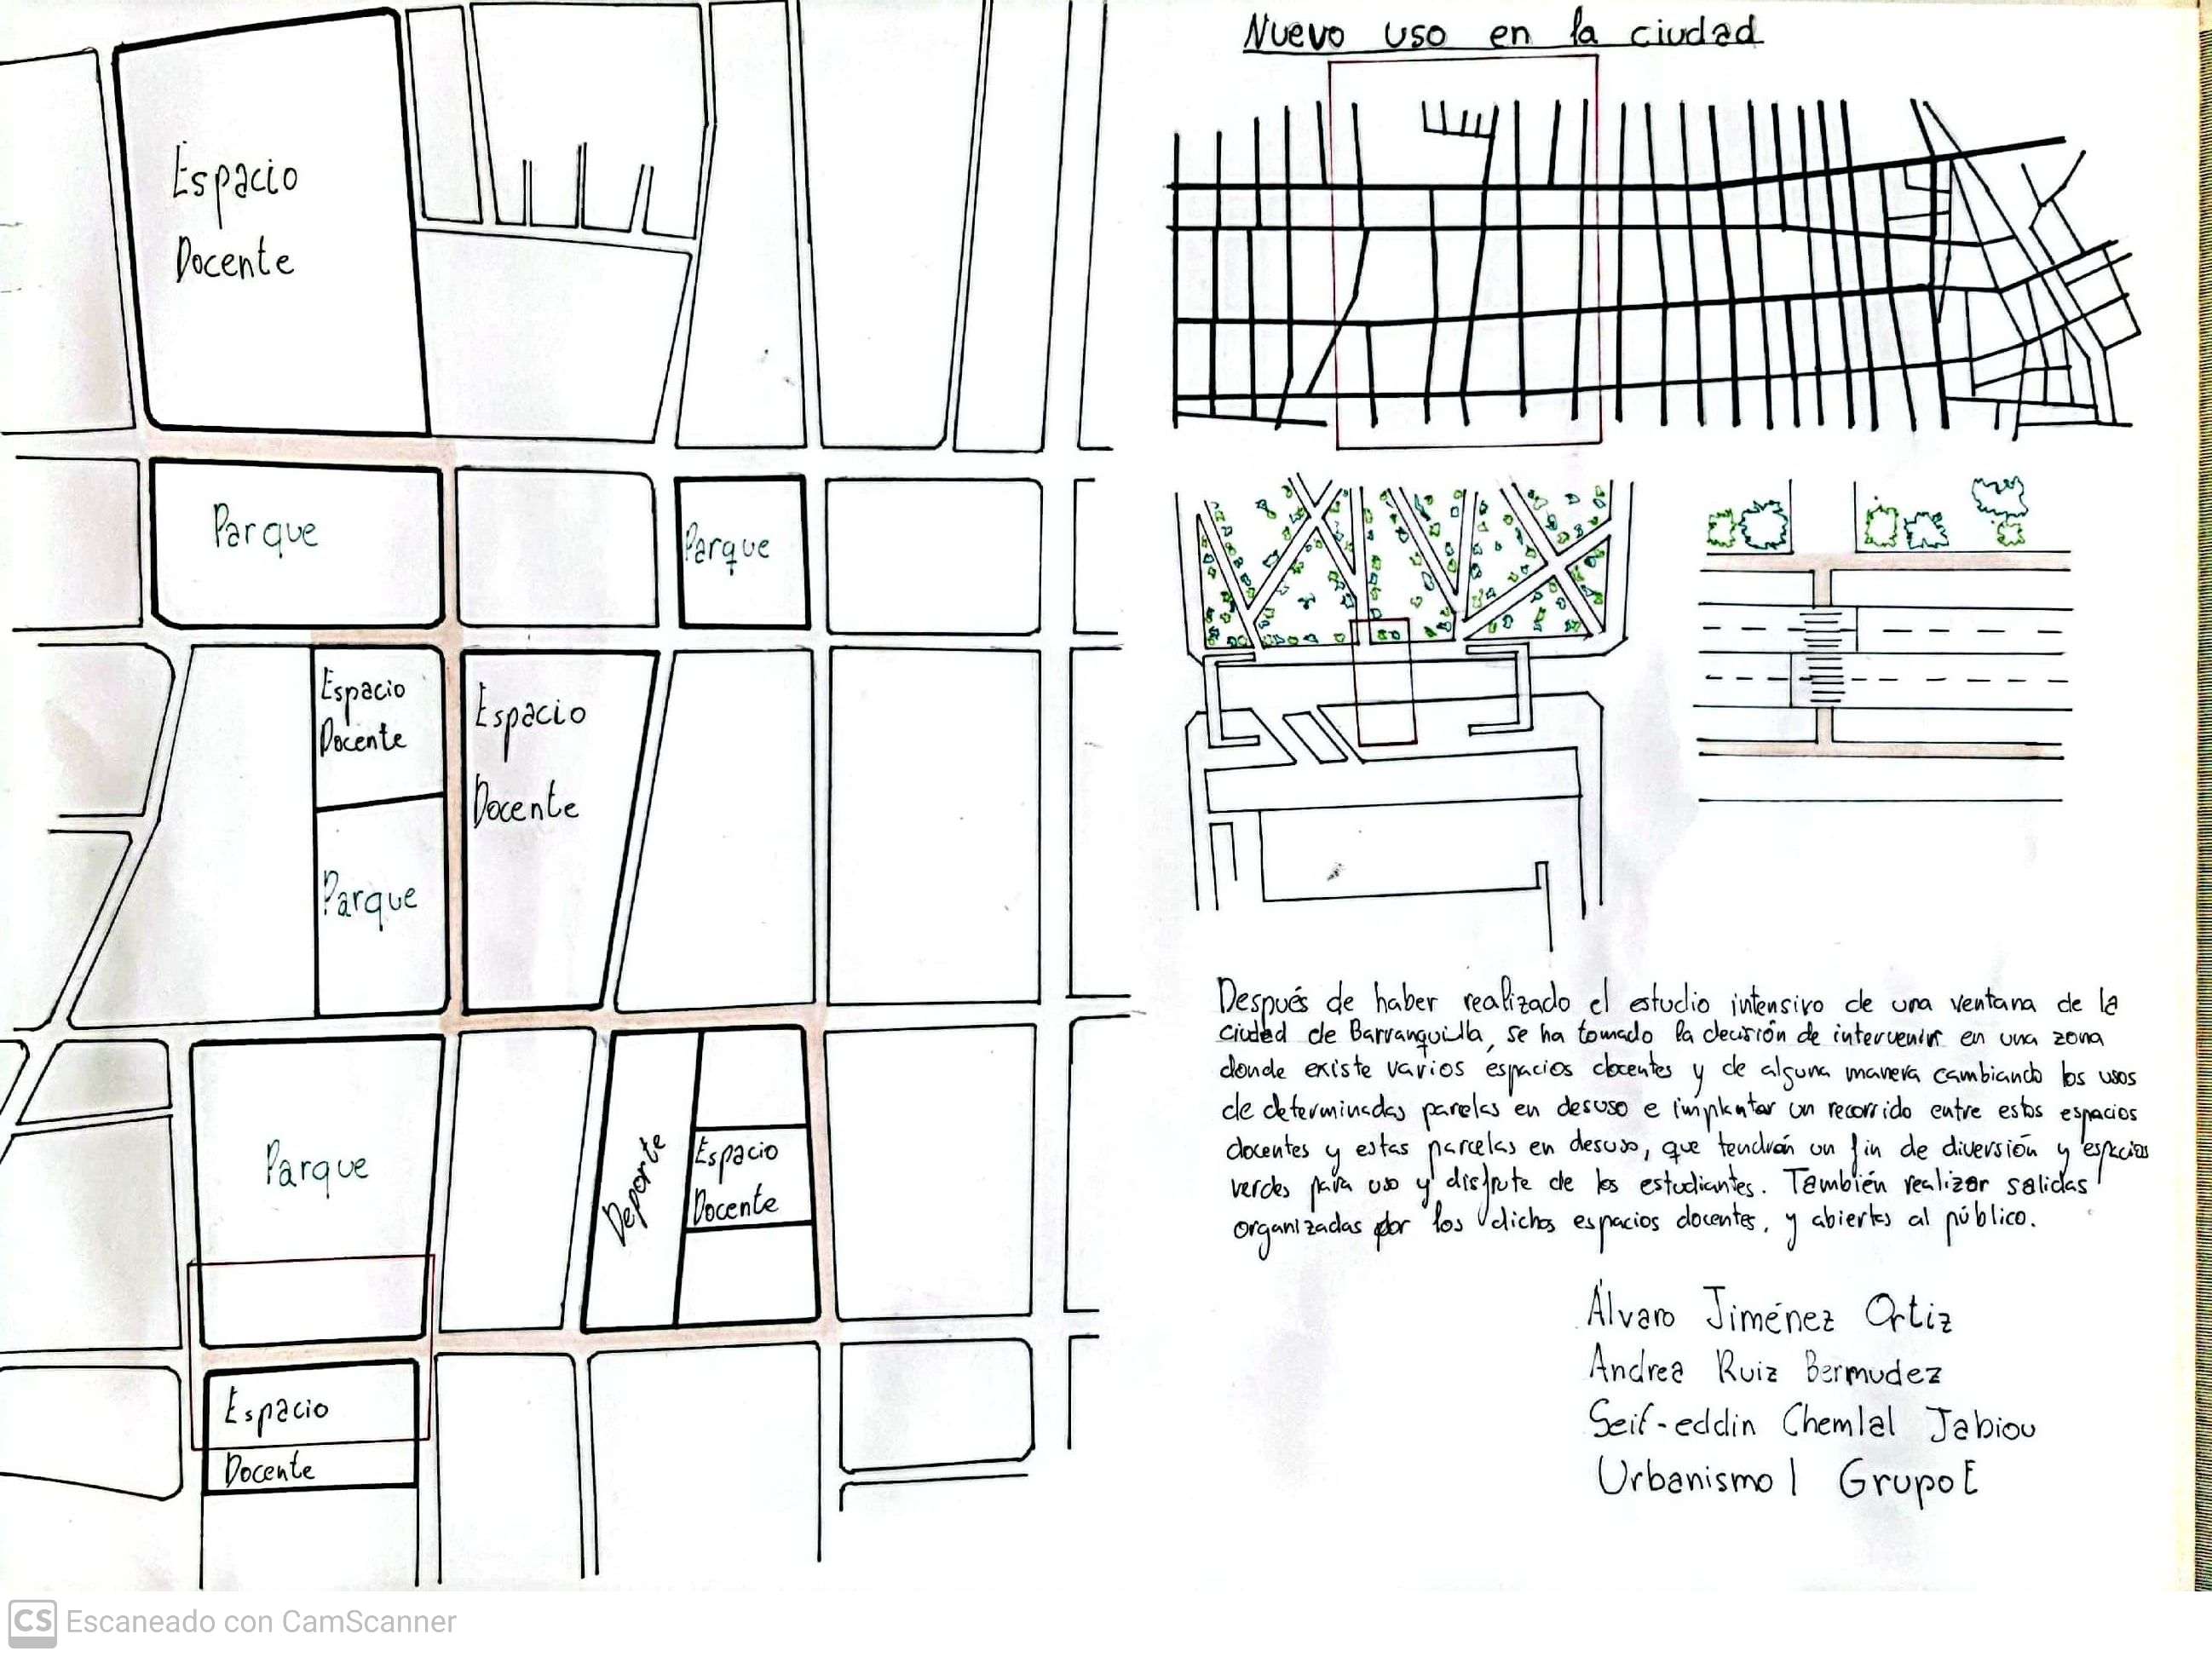 Nuevo uso en la ciudad
Espacio
Docente
Parque
Parque
Espacio
Docente
Espacio
Docente
Parque
Parque
Deporte
Espacio
Docente
Espacio
Docente
Después de haber realizado el estudio intensivo de una ventana de la
ciudad de Barranquilla, se ha tomado la decisión de intervenir en una zona
donde existe varios espacios docentes y de alguna manera cambiando los usos
de determinadas parelas en desuso e implantar un recorrido entre estos espacios
docentes y estas parcelas en desuso, que tendrán un fin de diversión y espacios
verdes para uso y disfrute de los estudiantes. También realizar salidas
organizadas por los dichos espacios docentes, y abiertas al público.
Álvaro Jiménez Ortiz
Andrea Ruiz Bermudez
Seif-eddin Chemlal Jabiou
Urbanismo I Grupo E
CS Escaneado con CamScanner